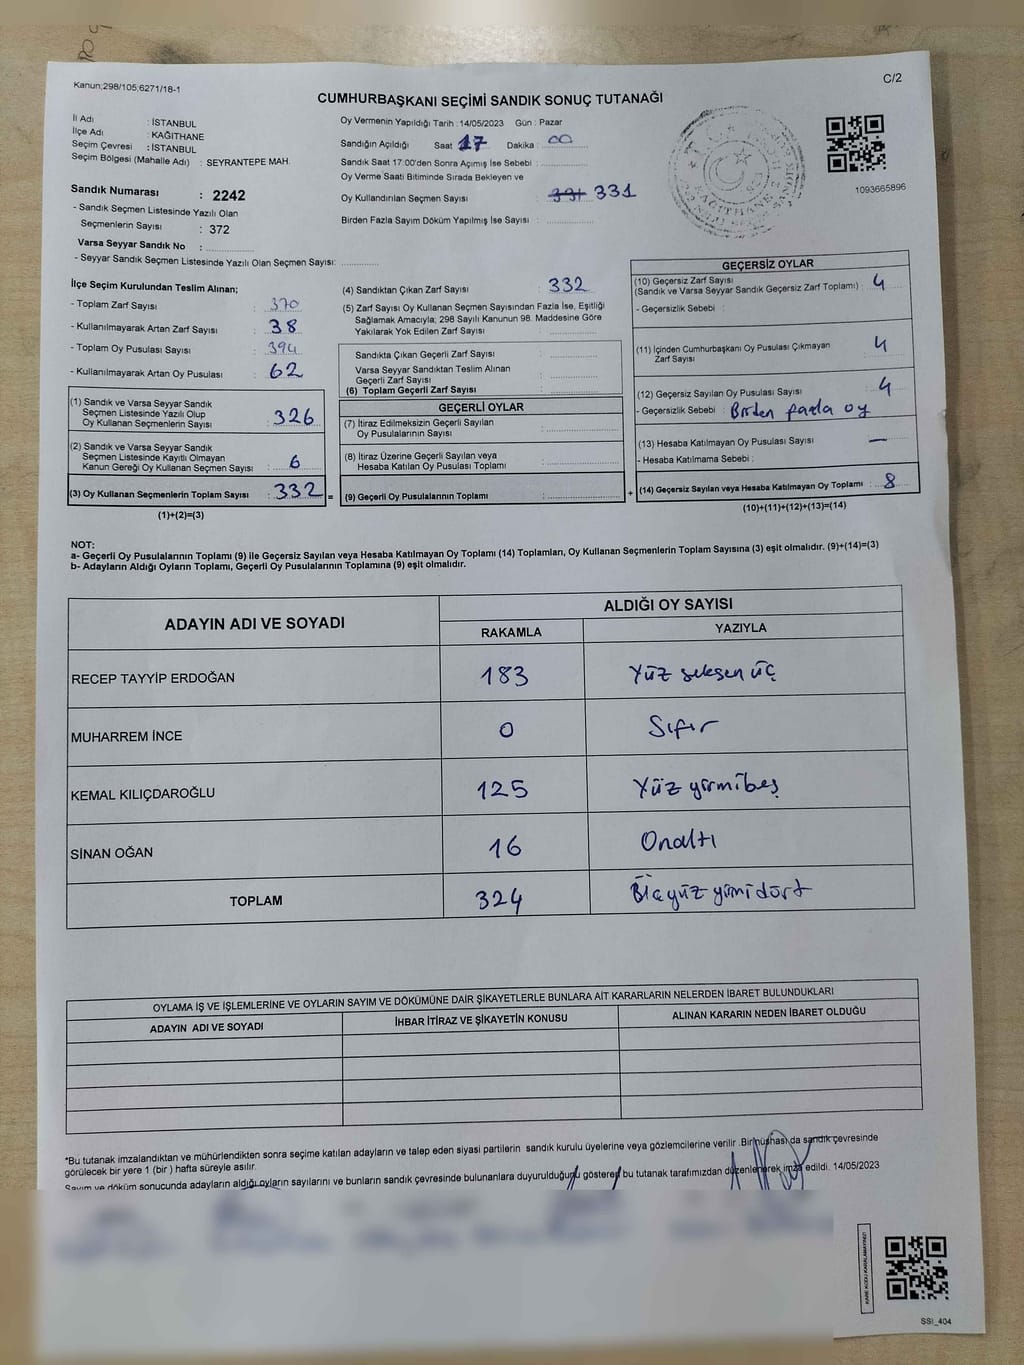 Kanun;298/105;6271/18-1
C/2
CUMHURBAŞKANI SEÇİMİ SANDIK SONUÇ TUTANAĞI
İl Adı : İSTANBUL
İlçe Adı : KAĞITHANE
Seçim Çevresi : İSTANBUL
Seçim Bölgesi (Mahalle Adı) : SEYRANTEPE MAH.
Sandık Numarası : 2242
- Sandık Seçmen Listesinde Yazılı Olan
Seçmenlerin Sayısı : 372
Varsa Seyyar Sandık No :
- Seyyar Sandık Seçmen Listesinde Yazılı Olan Seçmen Sayısı:
Oy Vermenin Yapıldığı Tarih : 14/05/2023 Gün : Pazar
Sandığın Açıldığı Saat 17 Dakika : 00
Sandık Saat 17:00'den Sonra Açımış İse Sebebi :
Oy Verme Saati Bitiminde Sırada Bekleyen ve
Oy Kullandırılan Seçmen Sayısı : 331
Birden Fazla Sayım Döküm Yapılmış İse Sayısı :
1093665896
İlçe Seçim Kurulundan Teslim Alınan;
- Toplam Zarf Sayısı : 370
- Kullanılmayarak Artan Zarf Sayısı : 38
- Toplam Oy Pusulası Sayısı : 394
- Kullanılmayarak Artan Oy Pusulası : 62
(1) Sandık ve Varsa Seyyar Sandık
Seçmen Listesinde Yazılı Olup
Oy Kullanan Seçmenlerin Sayısı : 326
(2) Sandık ve Varsa Seyyar Sandık
Seçmen Listesinde Kayıtlı Olmayan
Kanun Gereği Oy Kullanan Seçmen Sayısı : 6
(3) Oy Kullanan Seçmenlerin Toplam Sayısı : 332 =
(1)+(2)=(3)
(4) Sandıktan Çıkan Zarf Sayısı : 332
(5) Zarf Sayısı Oy Kullanan Seçmen Sayısından Fazla İse, Eşitliği
Sağlamak Amacıyla; 298 Sayılı Kanunun 98. Maddesine Göre
Yakılarak Yok Edilen Zarf Sayısı :
Sandıkta Çıkan Geçerli Zarf Sayısı :
Varsa Seyyar Sandıktan Teslim Alınan
Geçerli Zarf Sayısı :
(6) Toplam Geçerli Zarf Sayısı :
GEÇERLİ OYLAR
(7) İtiraz Edilmeksizin Geçerli Sayılan
Oy Pusulalarının Sayısı :
(8) İtiraz Üzerine Geçerli Sayılan veya
Hesaba Katılan Oy Pusulası Toplamı :
(9) Geçerli Oy Pusulalarının Toplamı : +
GEÇERSİZ OYLAR
(10) Geçersiz Zarf Sayısı
(Sandık ve Varsa Seyyar Sandık Geçersiz Zarf Toplamı) : 4
- Geçersizlik Sebebi :
(11) İçinden Cumhurbaşkanı Oy Pusulası Çıkmayan
Zarf Sayısı : 4
(12) Geçersiz Sayılan Oy Pusulası Sayısı : 4
- Geçersizlik Sebebi : Birden fazla oy
(13) Hesaba Katılmayan Oy Pusulası Sayısı : —
- Hesaba Katılmama Sebebi :
(14) Geçersiz Sayılan veya Hesaba Katılmayan Oy Toplamı : 8
(10)+(11)+(12)+(13)=(14)
NOT:
a- Geçerli Oy Pusulalarının Toplamı (9) ile Geçersiz Sayılan veya Hesaba Katılmayan Oy Toplamı (14) Toplamları, Oy Kullanan Seçmenlerin Toplam Sayısına (3) eşit olmalıdır. (9)+(14)=(3)
b- Adayların Aldığı Oyların Toplamı, Geçerli Oy Pusulalarının Toplamına (9) eşit olmalıdır.
ADAYIN ADI VE SOYADI
ALDIĞI OY SAYISI
RAKAMLA YAZIYLA
RECEP TAYYİP ERDOĞAN 183 Yüz seksen üç
MUHARREM İNCE 0 Sıfır
KEMAL KILIÇDAROĞLU 125 Yüz yirmibeş
SİNAN OĞAN 16 Onaltı
TOPLAM 324 Üçyüz yirmidört
OYLAMA İŞ VE İŞLEMLERİNE VE OYLARIN SAYIM VE DÖKÜMÜNE DAİR ŞİKAYETLERLE BUNLARA AİT KARARLARIN NELERDEN İBARET BULUNDUKLARI
ADAYIN ADI VE SOYADI İHBAR İTİRAZ VE ŞİKAYETİN KONUSU ALINAN KARARIN NEDEN İBARET OLDUĞU
*Bu tutanak imzalandıktan ve mühürlendikten sonra seçime katılan adayların ve talep eden siyasi partilerin sandık kurulu üyelerine veya gözlemcilerine verilir .Bir nüshası da sandık çevresinde
görülecek bir yere 1 (bir ) hafta süreyle asılır.
Sayım ve döküm sonucunda adayların aldığı oyların sayılarını ve bunların sandık çevresinde bulunanlara duyurulduğunu gösteren bu tutanak tarafımızdan düzenlenerek imza edildi. 14/05/2023
KARE KODU KARALAMAYINIZ!
SSI_404